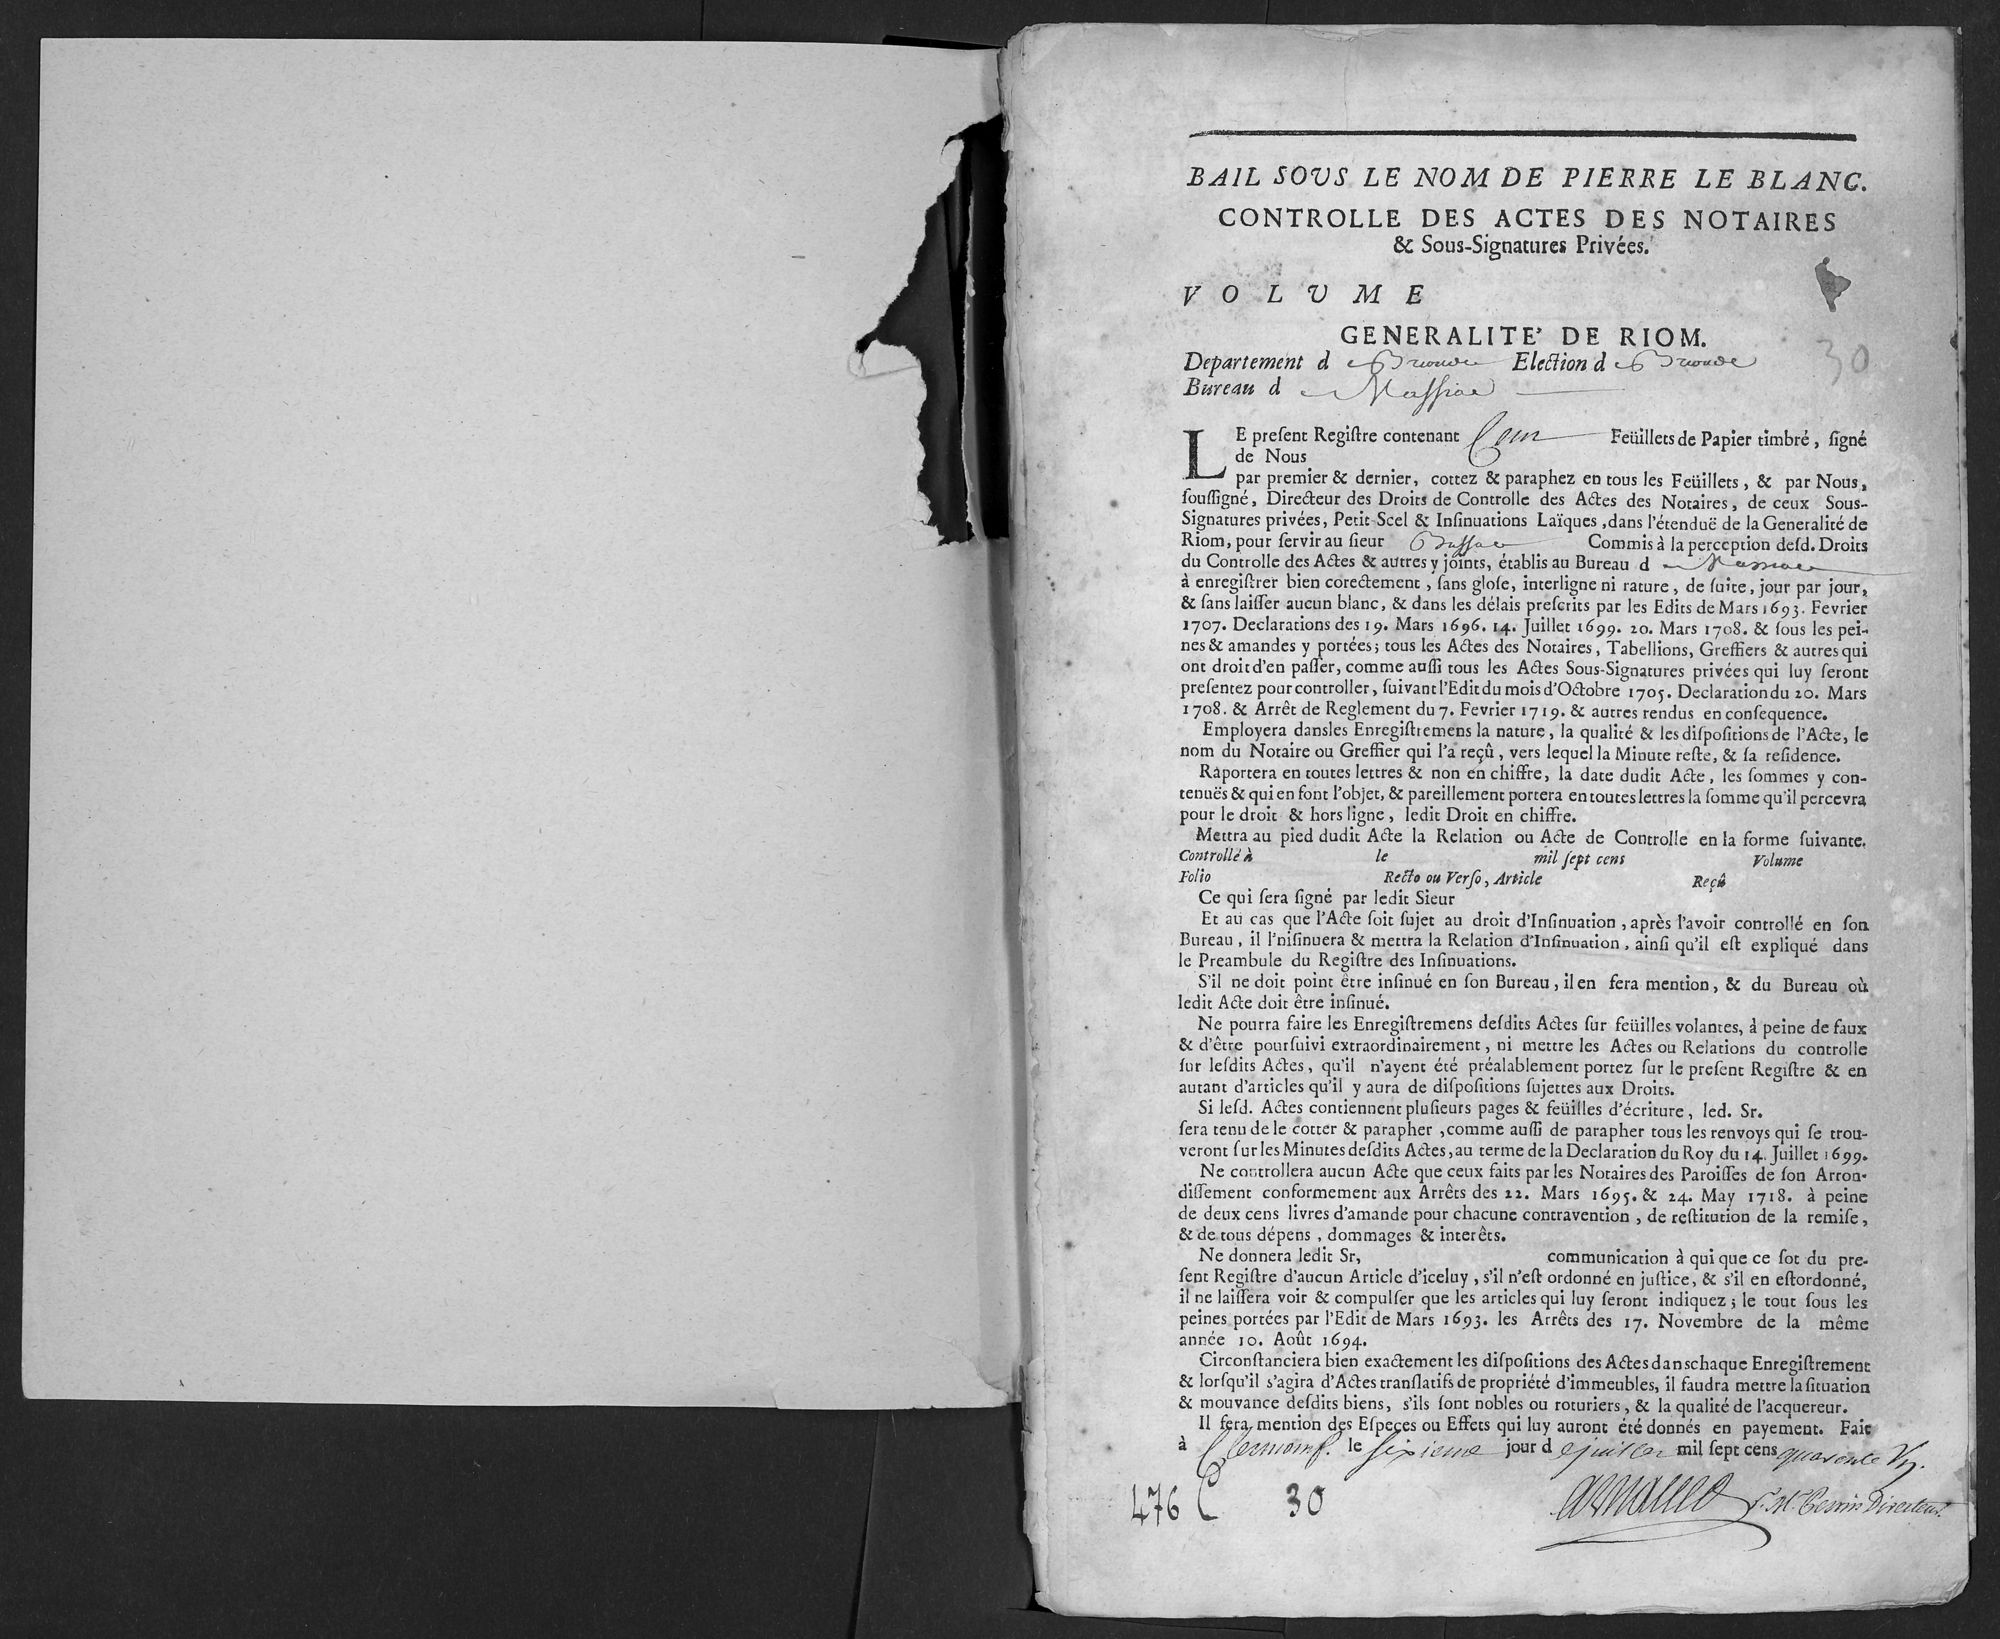 BAIL SOUS LE NOM DE PIERRE LE BLANC.
CONTROLLE DES ACTES DES NOTAIRES
& Sous-Signatures Privées.
VOLUME
GENERALITE' DE RIOM.
30
Departement de Brioude Election de Brioude
Bureau de Massiac
LE preſent Regiſtre contenant Cent Feüillets de Papier timbré, ſigné
de Nous
par premier & dernier, cottez & paraphez en tous les Feüillets, & par Nous,
ſouſſigné, Directeur des Droits de Controlle des Actes des Notaires, de ceux Sous-
Signatures privées, Petit Scel & Inſinuations Laïques, dans l'étenduë de la Generalité de
Riom, pour ſervir au ſieur Commis à la perception deſd. Droits
du Controlle des Actes & autres y joints, établis au Bureau de Massiac
à enregiſtrer bien corectement, ſans gloſe, interligne ni rature, de ſuite, jour par jour,
& ſans laiſſer aucun blanc, & dans les délais preſcrits par les Edits de Mars 1693. Fevrier
1707. Declarations des 19. Mars 1696. 14. Juillet 1699. 20. Mars 1708. & ſous les pei-
nes & amandes y portées; tous les Actes des Notaires, Tabellions, Greffiers & autres qui
ont droit d'en paſſer, comme auſſi tous les Actes Sous-Signatures privées qui luy ſeront
preſentez pour controller, ſuivant l'Edit du mois d'Octobre 1705. Declaration du 20. Mars
1708. & Arrêt de Reglement du 7. Fevrier 1719. & autres rendus en conſequence.
Employera dansles Enregiſtremens la nature, la qualité & les diſpoſitions de l'Acte, le
nom du Notaire ou Greffier qui l'a reçû, vers lequel la Minute reſte, & ſa reſidence.
Raportera en toutes lettres & non en chiffre, la date dudit Acte, les ſommes y con-
tenuës & qui en font l'objet, & pareillement portera en toutes lettres la ſomme qu'il percevra
pour le droit & hors ligne, ledit Droit en chiffre.
Mettra au pied dudit Acte la Relation ou Acte de Controlle en la forme ſuivante.
Controllé à le mil ſept cens Volume
Folio Recto ou Verſo, Article Reçû
Ce qui ſera ſigné par ledit Sieur
Et au cas que l'Acte ſoit ſujet au droit d'Inſinuation, après l'avoir controllé en ſon
Bureau, il l'niſinuera & mettra la Relation d'Inſinuation, ainſi qu'il eſt expliqué dans
le Preambule du Regiſtre des Inſinuations.
S'il ne doit point être inſinué en ſon Bureau, il en fera mention, & du Bureau où
ledit Acte doit être inſinué.
Ne pourra faire les Enregiſtremens deſdits Actes ſur feüilles volantes, à peine de faux
& d'être pourſuivi extraordinairement, ni mettre les Actes ou Relations du controlle
ſur leſdits Actes, qu'il n'ayent été préalablement portez ſur le preſent Regiſtre & en
autant d'articles qu'il y aura de diſpoſitions ſujettes aux Droits.
Si leſd. Actes contiennent pluſieurs pages & feüilles d'écriture, led. Sr.
ſera tenu de le cotter & parapher, comme auſſi de parapher tous les renvoys qui ſe trou-
veront ſur les Minutes deſdits Actes, au terme de la Declaration du Roy du 14. Juillet 1699.
Ne controllera aucun Acte que ceux faits par les Notaires des Paroiſſes de ſon Arron-
diſſement conformement aux Arrêts des 22. Mars 1695. & 24. May 1718. à peine
de deux cens livres d'amande pour chacune contravention, de reſtitution de la remiſe,
& de tous dépens, dommages & interêts.
Ne donnera ledit Sr, communication à qui que ce ſot du pre-
ſent Regiſtre d'aucun Article d'iceluy, s'il n'eſt ordonné en juſtice, & s'il en eſtordonné,
il ne laiſſera voir & compulſer que les articles qui luy ſeront indiquez; le tout ſous les
peines portées par l'Edit de Mars 1693. les Arrêts des 17. Novembre de la même
année 10. Août 1694.
Circonſtanciera bien exactement les diſpoſitions des Actes danschaque Enregiſtrement
& lorſqu'il s'agira d'Actes tranſlatifs de propriété d'immeubles, il faudra mettre la ſituation
& mouvance deſdits biens, s'ils ſont nobles ou roturiers, & la qualité de l'acquereur.
Il fera mention des Eſpeces ou Effets qui luy auront été donnés en payement. Fait
à Clermont. le sixieme jour de juillet mil ſept cens quarente
476 C 30
Directeur